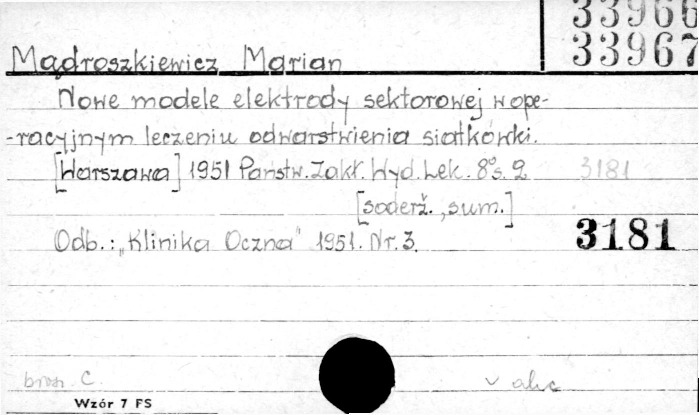 33966
33967
Mądroszkiewicz Marian
Nowe modele elektrody sektorowej w ope-
-racyjnym leczeniu odwarstwienia siatkówki.
[Warszawa] 1951 Państw. Zakł. Wyd. Lek. 8° s. 2 3181
[soderž., sum.]
Odb.: „Klinika Oczna" 1951. Nr. 3. 3181
C.
Wzór 7 FS